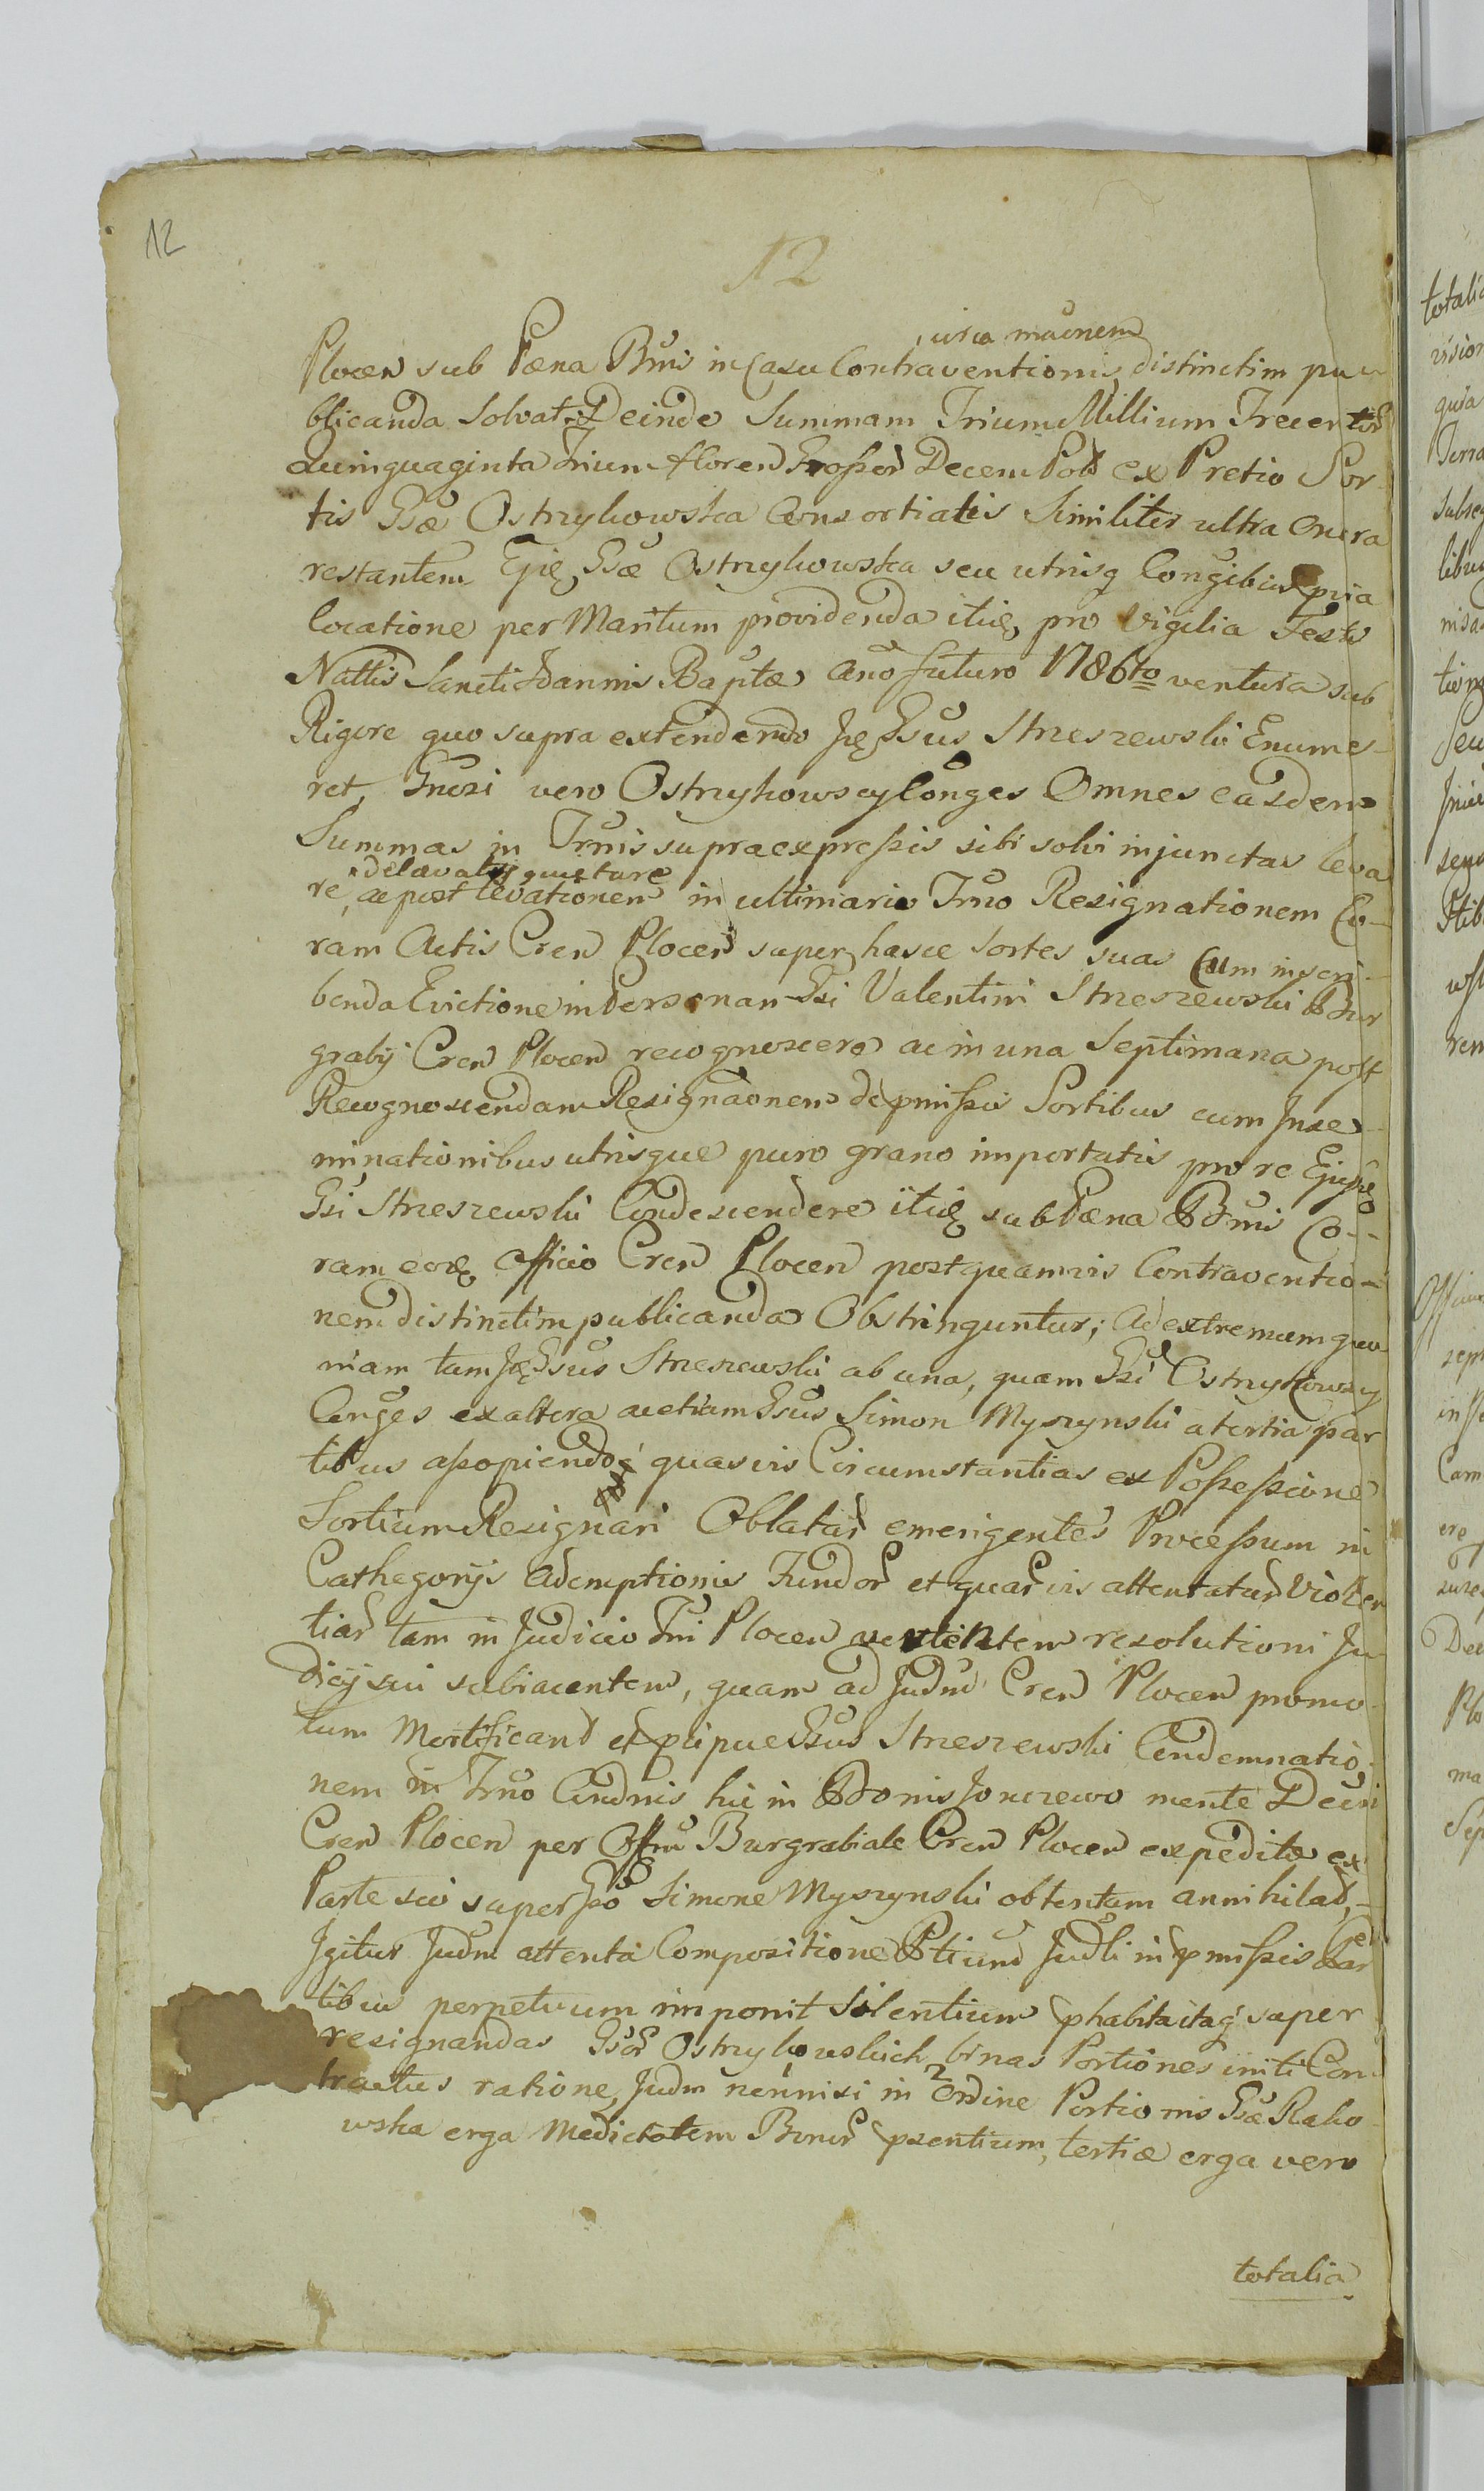 12
12
circa macnem
Plocen sub Pæna Bnni in Casu Contraventionis, distinctim pu
blicanda Solvat. Deinde Summam Trium Millium Trecentor
Quinquaginta Trium floren Großor Decem Pol ex Pretio Sor
tis Gsæ Ostrzykowska Consortialis Similiter ultra Onera
restantem Gsæ Ostrzykowska seu utrisq Conjgibus
locatione per Maritum providenda pro Vigilia Festi
Nattis Sancti Joannis Baptæ Ano futuro 1786to ventura sub
Rigore quo supra extendendo Gsus Strzeszewski Enume-
ret, Gnosi vero Ostrzykowscy Conges Omnes easdem
Summas in Trnis supraexpreßis sibi solvi injunctas leva
quietare
re, ac post levationem in ultimario Trno Resignationem Co-
ram Actis Cren Plocen super hasce Sortes suas Cum inscri-
benda Evictione in Personam Gsi Valentini Strzeszewski Bur
grabij Cren Plocen recognoscere ac in una Septimana post
Recognoscendam Resignaonem de pmißis Sortibus cum Inse-
minationibus utrisque puro grano importatis pro re
Gsi Strzeszewski Condescendere sub Pæna Bnni Co-
ram Officio Cren Plocen post quamvis Contraventio-
nem distinctim publicanda Obstringuntur; Ad extremum quo-
niam tam Gsus Strzeszewski ab una, quam Gsi Ostrzykowscy
Conges ex altera ac etiam Gsus Simon Myszynski a tertia par
tibus aßopiendo quasvis Circumstantias ex Poßeßione
Sortium Resignari Oblatar emergentes Proceßum in
Cathegorijs Ademptionis Fundor et quarvis attentatar Violen
tiar tam in Judicio Tri Plocen resolutioni Ju
dicij sui subiacentem, quam ad Judm Cren Plocen promo-
tum Mortificant et pcipue Gsus Strzeszewski Condemnatio-
nem in Trno Condnis hic in Bonis Jonczewo mente Decri
Cren Plocen per Offm Burgrabiale Cren Plocen expeditæ ex
Parte sui super Gso Simone Myszynski obtentam annihilat,-
Igitur Judm attenta Compositione Ptium Judli in pmißis Par
tibus perpetuum imponit Silentium phabita itaq super
resignandas Gsor Ostrzykowskich binas Portiones initi Con
tractus ratione, Judm nonnisi in 2 Ordine Portionis Gsæ Rako
wska erga Medietatem Bonor psentium, tertiæ erga vero
totalia